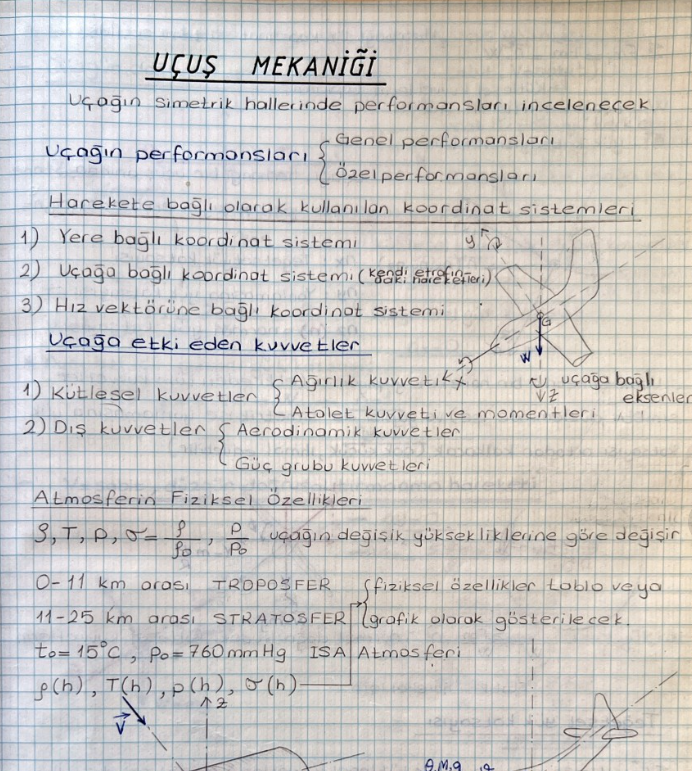 UÇUŞ MEKANİĞİ
Uçağın simetrik hallerinde performansları incelenecek.
Uçağın performansları { Genel performansları
Özel performansları
Harekete bağlı olarak kullanılan koordinat sistemleri
1) Yere bağlı koordinat sistemi
2) Uçağa bağlı koordinat sistemi (kendi etrafındaki hareketleri)
3) Hız vektörüne bağlı koordinat sistemi
y
G
W
x
z
uçağa bağlı
eksenler
Uçağa etki eden kuvvetler
1) Kütlesel kuvvetler { Ağırlık kuvveti
Atalet kuvveti ve momentleri
2) Dış kuvvetler { Aerodinamik kuvvetler
Güç grubu kuvvetleri
Atmosferin Fiziksel Özellikleri
ρ, T, P, σ = ρ/ρ0, P/P0 uçağın değişik yüksekliklerine göre değişir
0-11 km arası TROPOSFER { fiziksel özellikler tablo veya
11-25 km arası STRATOSFER grafik olarak gösterilecek.
t0 = 15°C, p0 = 760 mmHg ISA Atmosferi
ρ(h), T(h), p(h), σ(h)
V
z